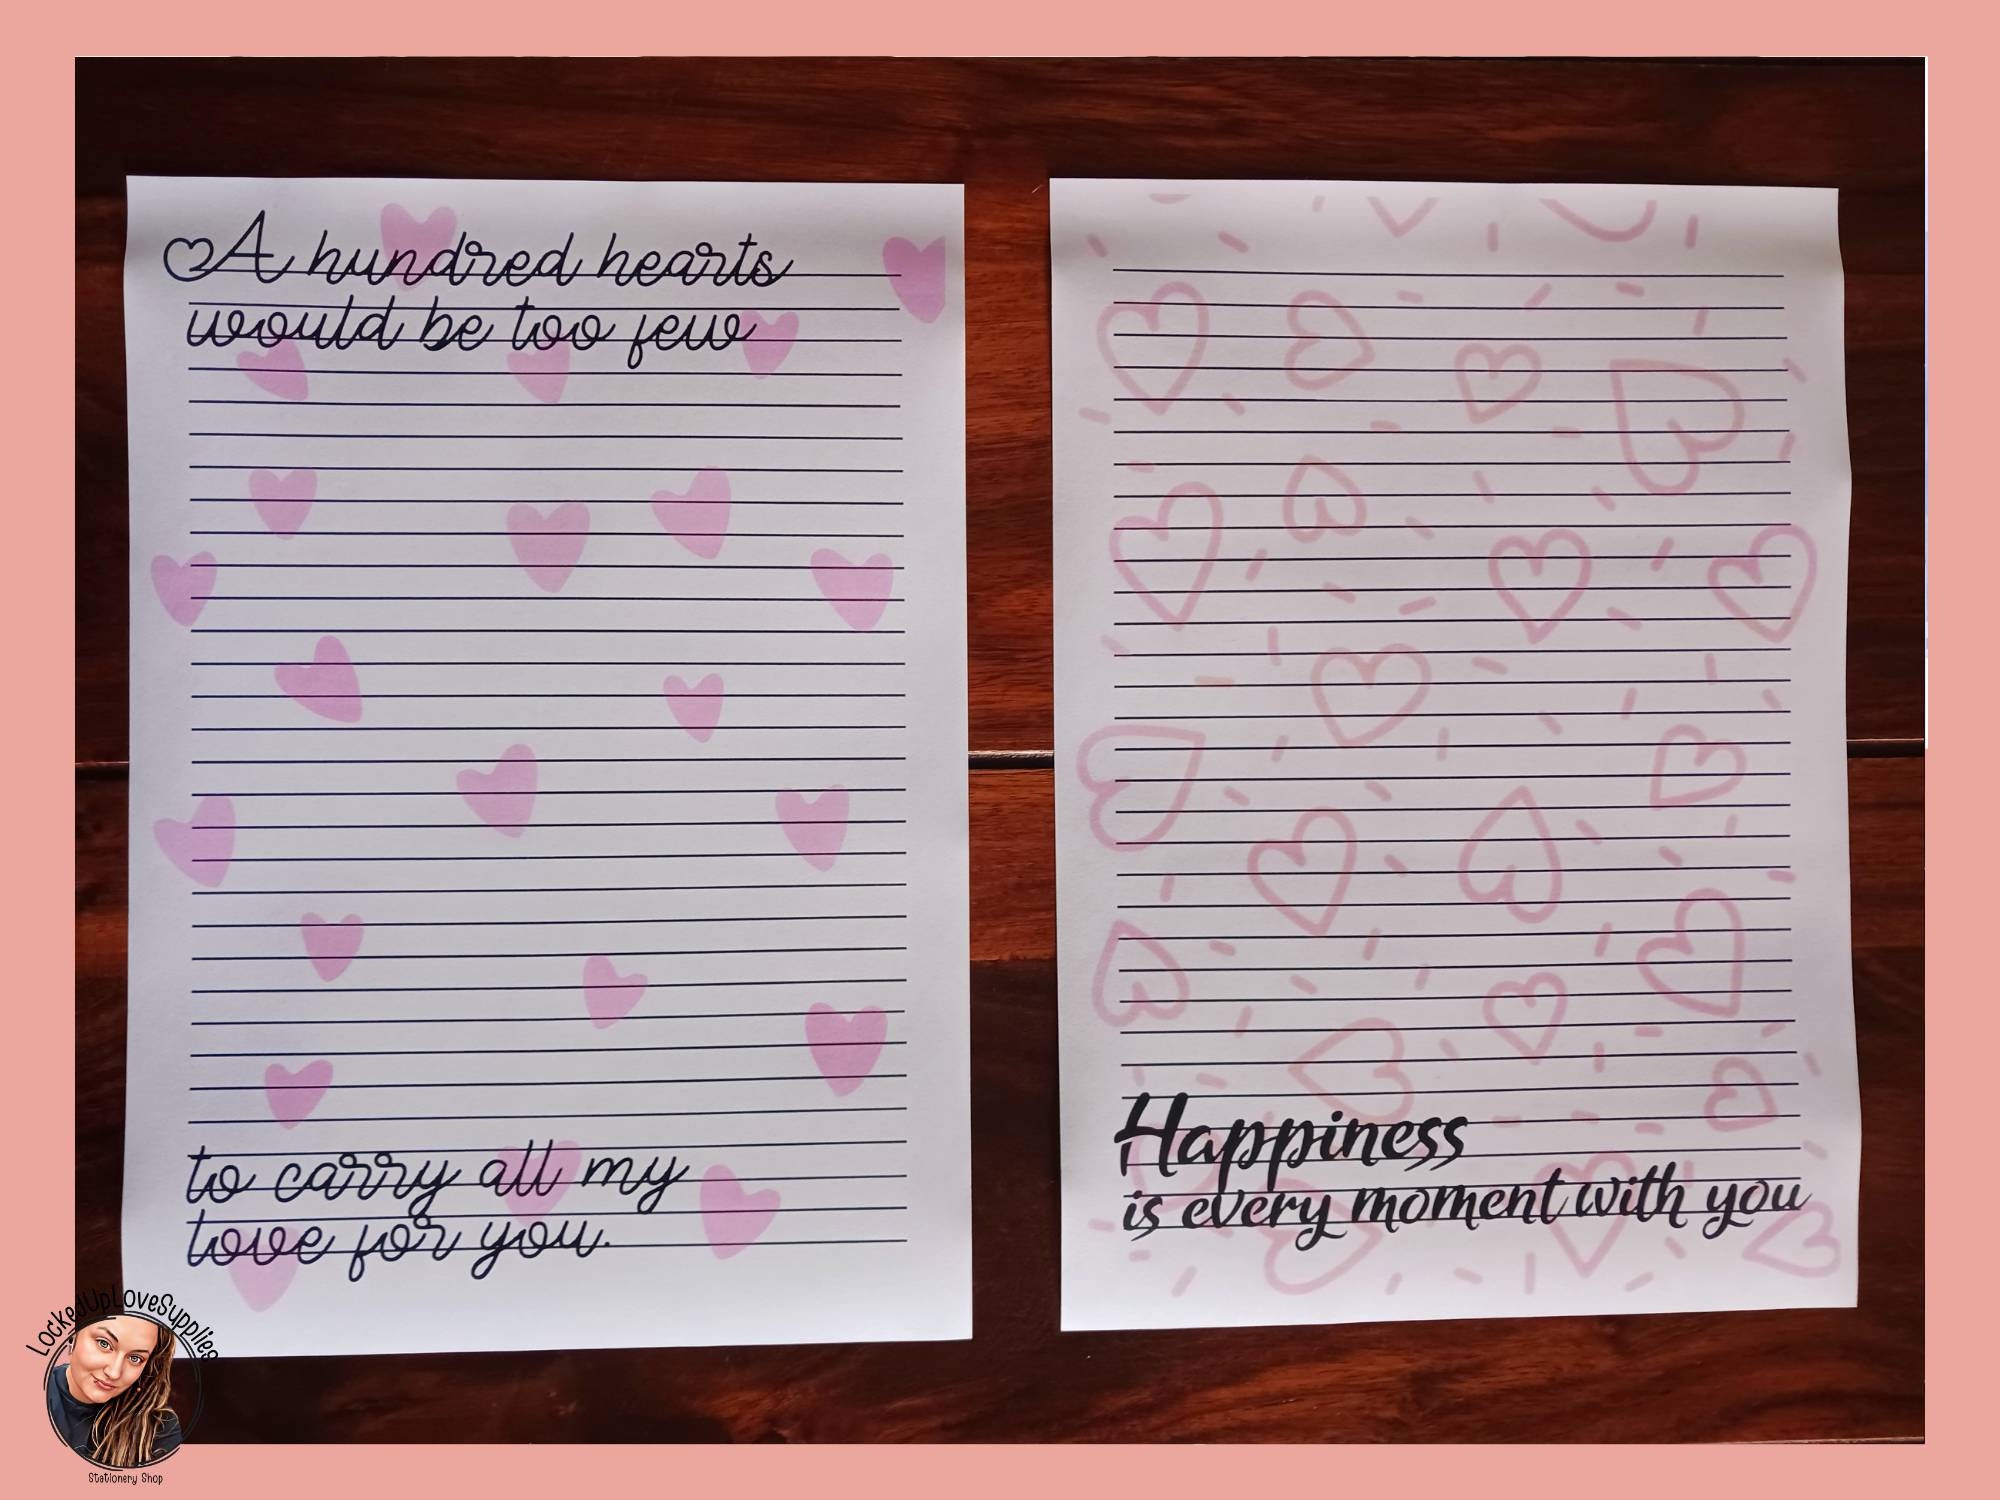 A hundred hearts
would be too few
to carry all my
love for you.
Happiness
is every moment with you
LockedUpLoveSupplies
Stationery Shop